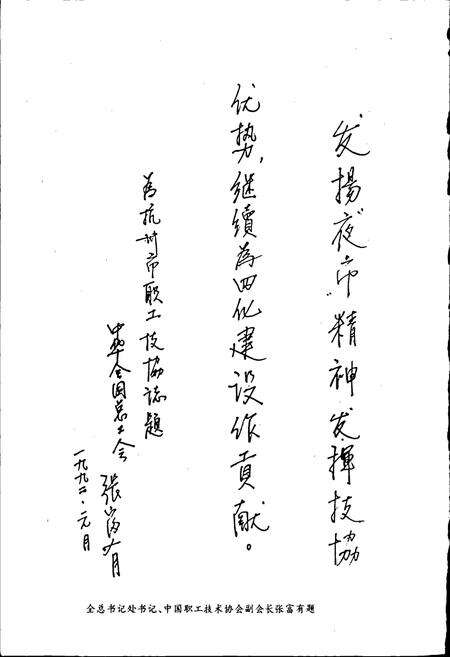 发揚“夜市”精神发揮技协
优势，继續为四化建设作貢献。
为杭州市职工技协誌題
中华全国总工会
张富有
一九九二·元月
全总书记处书记、中国职工技术协会副会长张富有题